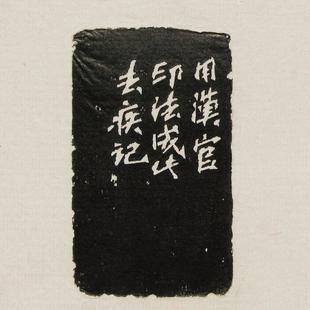 用漢官
印法成此
去疾记